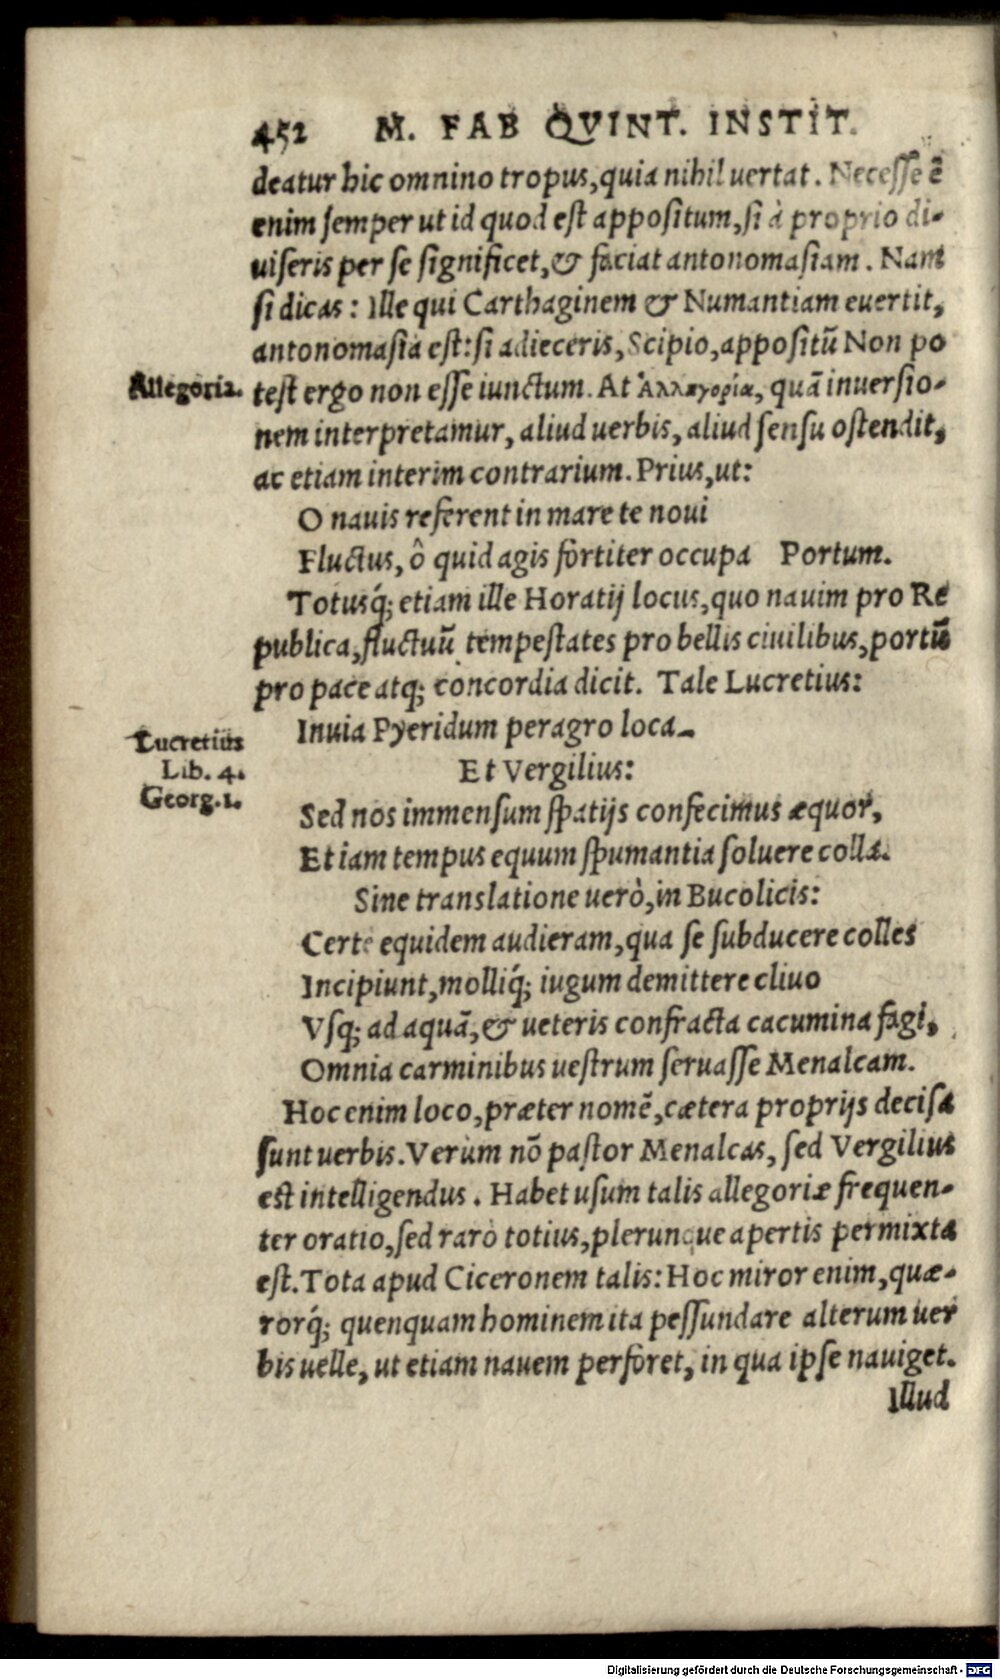 452 M. FAB QVINT. INSTIT.
deatur hic omnino tropus, quia nihil uertat. Necesse ē
enim semper ut id quod est appositum, si à proprio di-
uiseris per se significet, & faciat antonomasiam. Nam
si dicas: Ille qui Carthaginem & Numantiam euertit,
antonomasia est: si adieceris, Scipio, appositū Non po
Allegoria.
test ergo non esse iunctum. At Ἀλληγορία, quā inuersio-
nem interpretamur, aliud uerbis, aliud sensu ostendit,
ac etiam interim contrarium. Prius, ut:
O nauis referent in mare te noui
Fluctus, ô quid agis fortiter occupa Portum.
Totusq́; etiam ille Horatij locus, quo nauim pro Re
publica, fluctuū tempestates pro bellis ciuilibus, portū
pro pace atq; concordia dicit. Tale Lucretius:
Lucretius
Lib. 4.
Georg. 1.
Inuia Pyeridum peragro loca-
Et Vergilius:
Sed nos immensum spatijs confecimus æquor,
Et iam tempus equum spumantia soluere colla.
Sine translatione uerò, in Bucolicis:
Certe equidem audieram, qua se subducere colles
Incipiunt, molliq́; iugum demittere cliuo
Vsq; ad aquā, & ueteris confracta cacumina fagi,
Omnia carminibus uestrum seruasse Menalcam.
Hoc enim loco, præter nomē, cætera proprijs decisa
sunt uerbis. Verùm nō pastor Menalcas, sed Vergilius
est intelligendus. Habet usum talis allegoriæ frequen-
ter oratio, sed rarò totius, plerunque apertis permixta
est. Tota apud Ciceronem talis: Hoc miror enim, quæ-
rorq́; quenquam hominem ita pessundare alterum uer
bis uelle, ut etiam nauem perforet, in qua ipse nauiget.
Illud
Digitalisierung gefördert durch die Deutsche Forschungsgemeinschaft - DFG